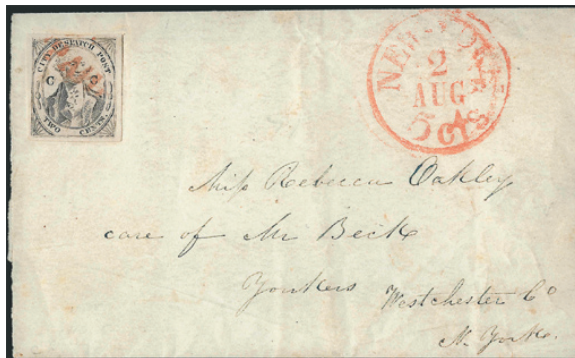 CITY DESPATCH POST
C C
TWO CENTS.
NEW YORK
2
AUG
5 cts
Miss Rebecca Oakley
care of Mr Beck
Yonkers
Westchester Co
N. York.